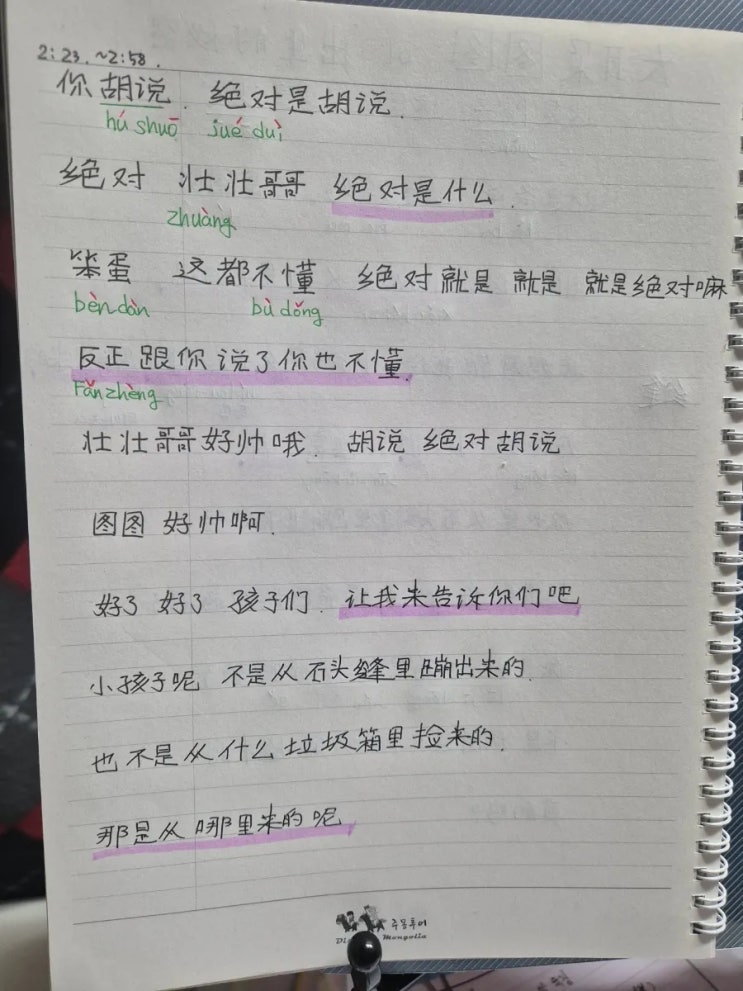 2:23.~2:58.
你胡说. 绝对是胡说.
hú shuō jué duì
绝对 壮壮哥哥 绝对是什么.
zhuàng
笨蛋 这都不懂 绝对就是 就是 就是绝对嘛
bèn dàn bù dǒng
反正跟你说了你也不懂.
Fǎn zhèng
壮壮哥哥好帅哦. 胡说 绝对胡说
图图 好帅啊.
好了 好了 孩子们. 让我来告诉你们吧
小孩子呢 不是从石头缝里蹦出来的.
也不是从什么垃圾箱里捡来的.
那是从哪里来的呢
주몽투어
Mongolia